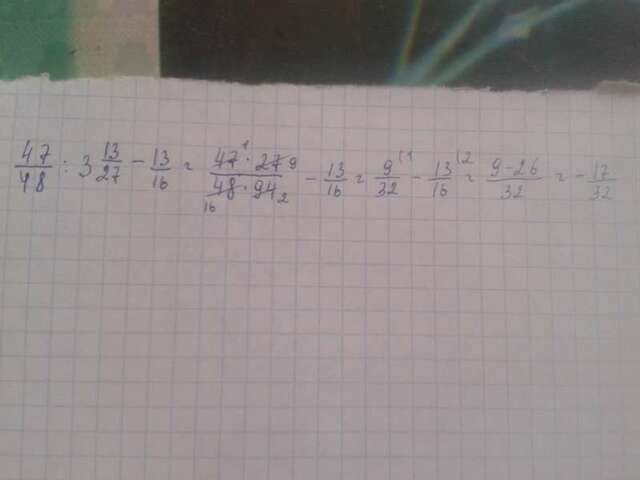 47/48 : 3 13/27 - 13/16 = 47¹ · 27 9 / 48 16 · 94 2 - 13/16 = 9/32 (1 - 13/16 (2 = 9-26/32 = - 17/32